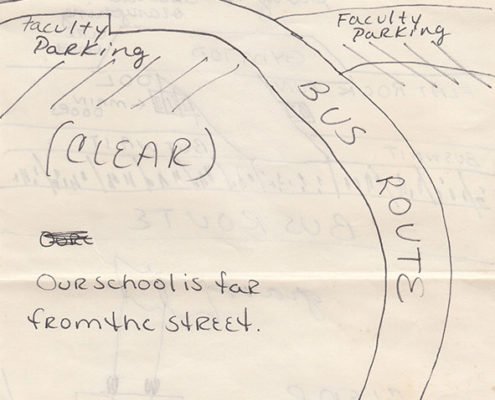 Faculty
Parking
Faculty
Parking
BUS ROUTE
(CLEAR)
Our school is far
from the street.